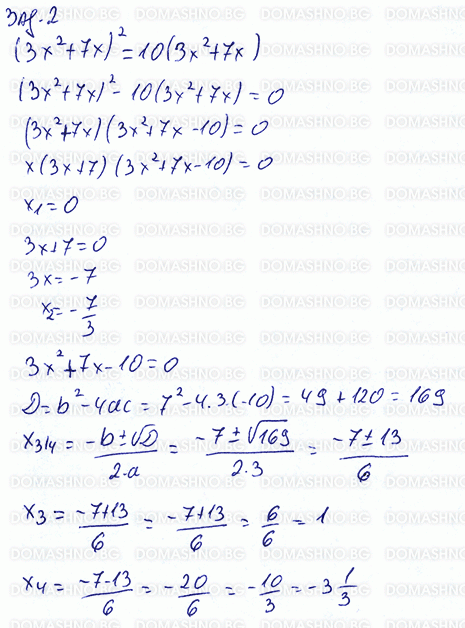 Зад. 2
(3x²+7x)² = 10(3x²+7x)
(3x²+7x)² - 10(3x²+7x) = 0
(3x²+7x)(3x²+7x-10) = 0
x(3x+7)(3x²+7x-10) = 0
x₁ = 0
3x+7 = 0
3x = -7
x₂ = -7/3
3x²+7x-10 = 0
D = b²-4ac = 7²-4.3.(-10) = 49+120 = 169
x₃/₄ = (-b±√D)/(2.a) = (-7±√169)/(2.3) = (-7±13)/6
x₃ = (-7+13)/6 = (-7+13)/6 = 6/6 = 1
x₄ = (-7-13)/6 = -20/6 = -10/3 = -3 1/3